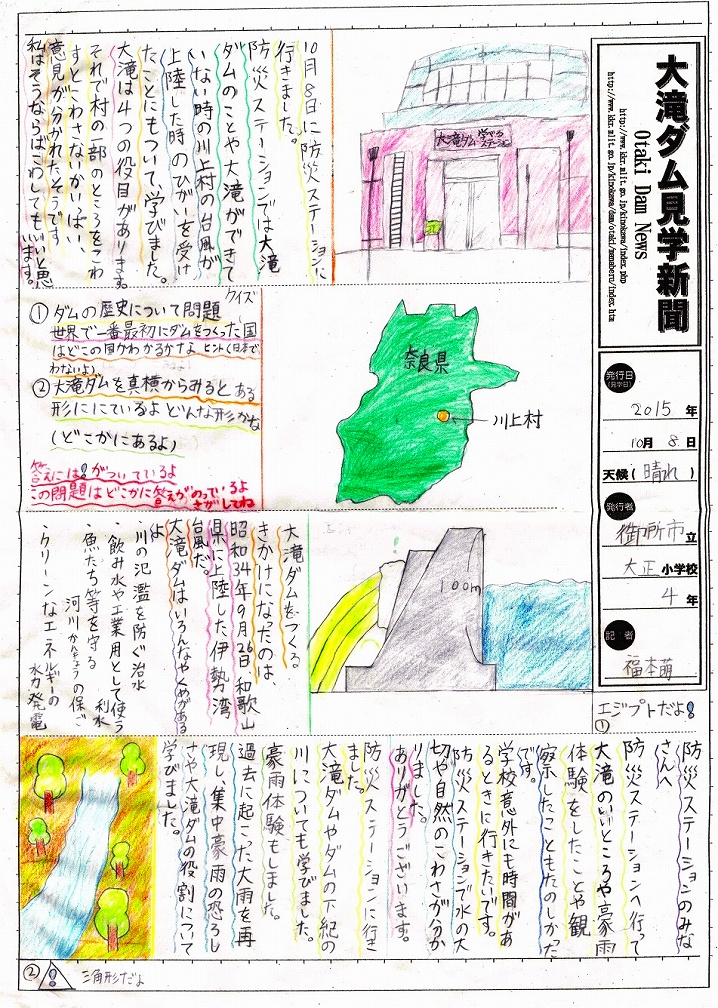 大滝ダム見学新聞
Otaki Dam News
http://www.kkr.mlit.go.jp/kinokawa/index.php
http://www.kkr.mlit.go.jp/kinokawa/dam/otaki/manaberu/index.htm
発行日
(見学日)
2015年
10月8日
天候(晴れ)
発行者
御所市立
大正小学校
4年
記者
福本萌
大滝ダム学べる
ステーション
10月8日に防災ステーションに
行きました。
防災ステーションでは大滝
ダムのことや大滝ができて
いない時の川上村の台風が
上陸した時のひがいを受け
たことにもついて学びました。
大滝は4つの役目があります。
それで村の一部のところをこわ
すとこわさないかいはい、
意見が分かれたそうです。
私はそうならばこわしてもいいと思
います。
奈良県
川上村
クイズ
①ダムの歴史について問題
世界で一番最初にダムをつくった国
はどこの国かわかるかなよ ヒント(日本で
わないよ)
②大滝ダムを真横からみるとある
形ににているよ どんな形かな
(どこかにあるよ)
答えには!がついているよ
この問題はどこかに答えがのっているよ
さがしてね
100m
大滝ダムをつくる
きかけになったのは、
昭和34年9月26日 和歌山
県に上陸した伊勢湾
台風だ。
大滝ダムはいろんなやくめがある
よ
・川の氾濫を防ぐ治水
・飲み水や工業用として使う
利水
・魚たち等を守る
河川かんきょうの保ご
・クリーンなエネルギーの
水力発電
エジプトだよ!
①
防災ステーションのみな
さんへ
防災ステーションへ行って
大滝のいいところや豪雨
体験をしたことや観
察したこともたのしかった
です。
学校意外にも時間があ
るときに行きたいです。
防災ステーションで水の大
切や自然のこわさが分か
りました。
ありがとうございます。
防災ステーションに行き
ました。
大滝ダムやダムの下紀の
川についても学びました。
豪雨体験もしました。
過去に起こった大雨を再
現し、集中豪雨の恐ろし
さや大滝ダムの役割について
学びました。
② ! 三角形だよ